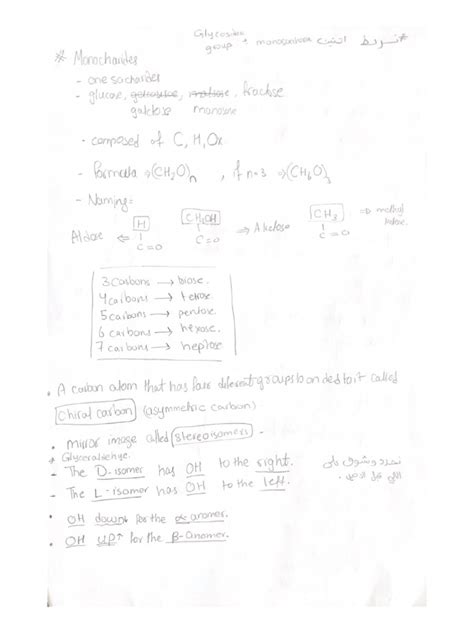 Glycosidic
group + monosaccharide اثنين تربط *
* Monocharides
- one sacharides
- glucose, galactose, maltose, fractose
galactose manose
- composed of C, H, Ox
- Formula → (CH2O)n , if n=3 → (CH6O)3
- Naming:-
H CH2OH CH3 ⇒ methyl
Aldose ⇐ C=O C=O ⇒ A ketose C=O ketose
3 Carbons → triose.
4 carbons → tetrose.
5 carbons → pentose.
6 carbons → hexose.
7 carbons → heptose
• A carbon atom that has four different groups bonded to it called
chiral carbon (asymmetric carbon)
• Mirror image called stereoisomers.
* Glyceraldehye.
- The D-isomer has OH to the right.
- The L-isomer has OH to the left.
• OH down for the α-anomer.
• OH UP↑ for the β-anomer.